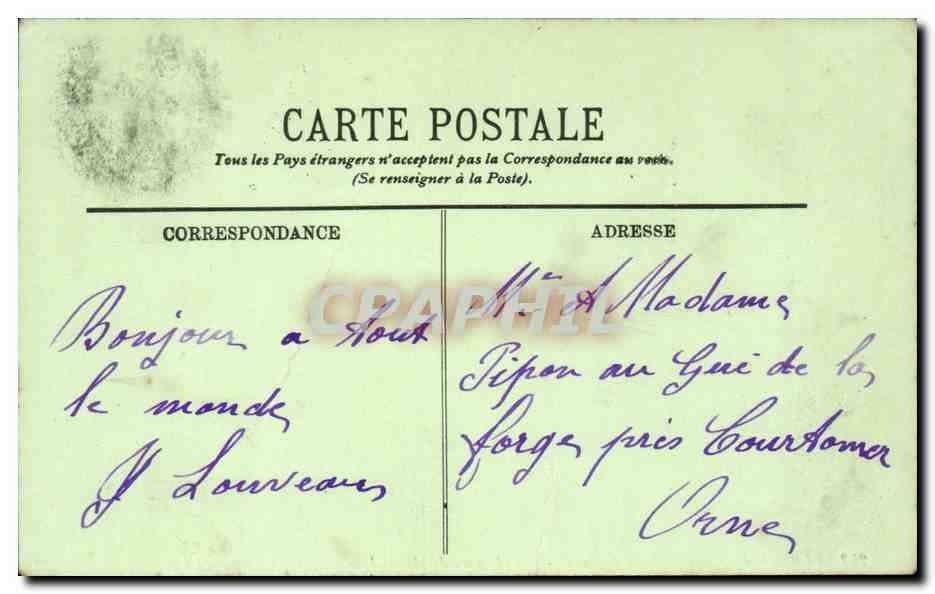 CARTE POSTALE
Tous les Pays étrangers n'acceptent pas la Correspondance au
(Se renseigner à la Poste).
CORRESPONDANCE
Bonjour a tout
le monde
Louveau
ADRESSE
Mr & Madame
Pipon au Gué de la
forge près Courtomer
Orne
CPAPHIL